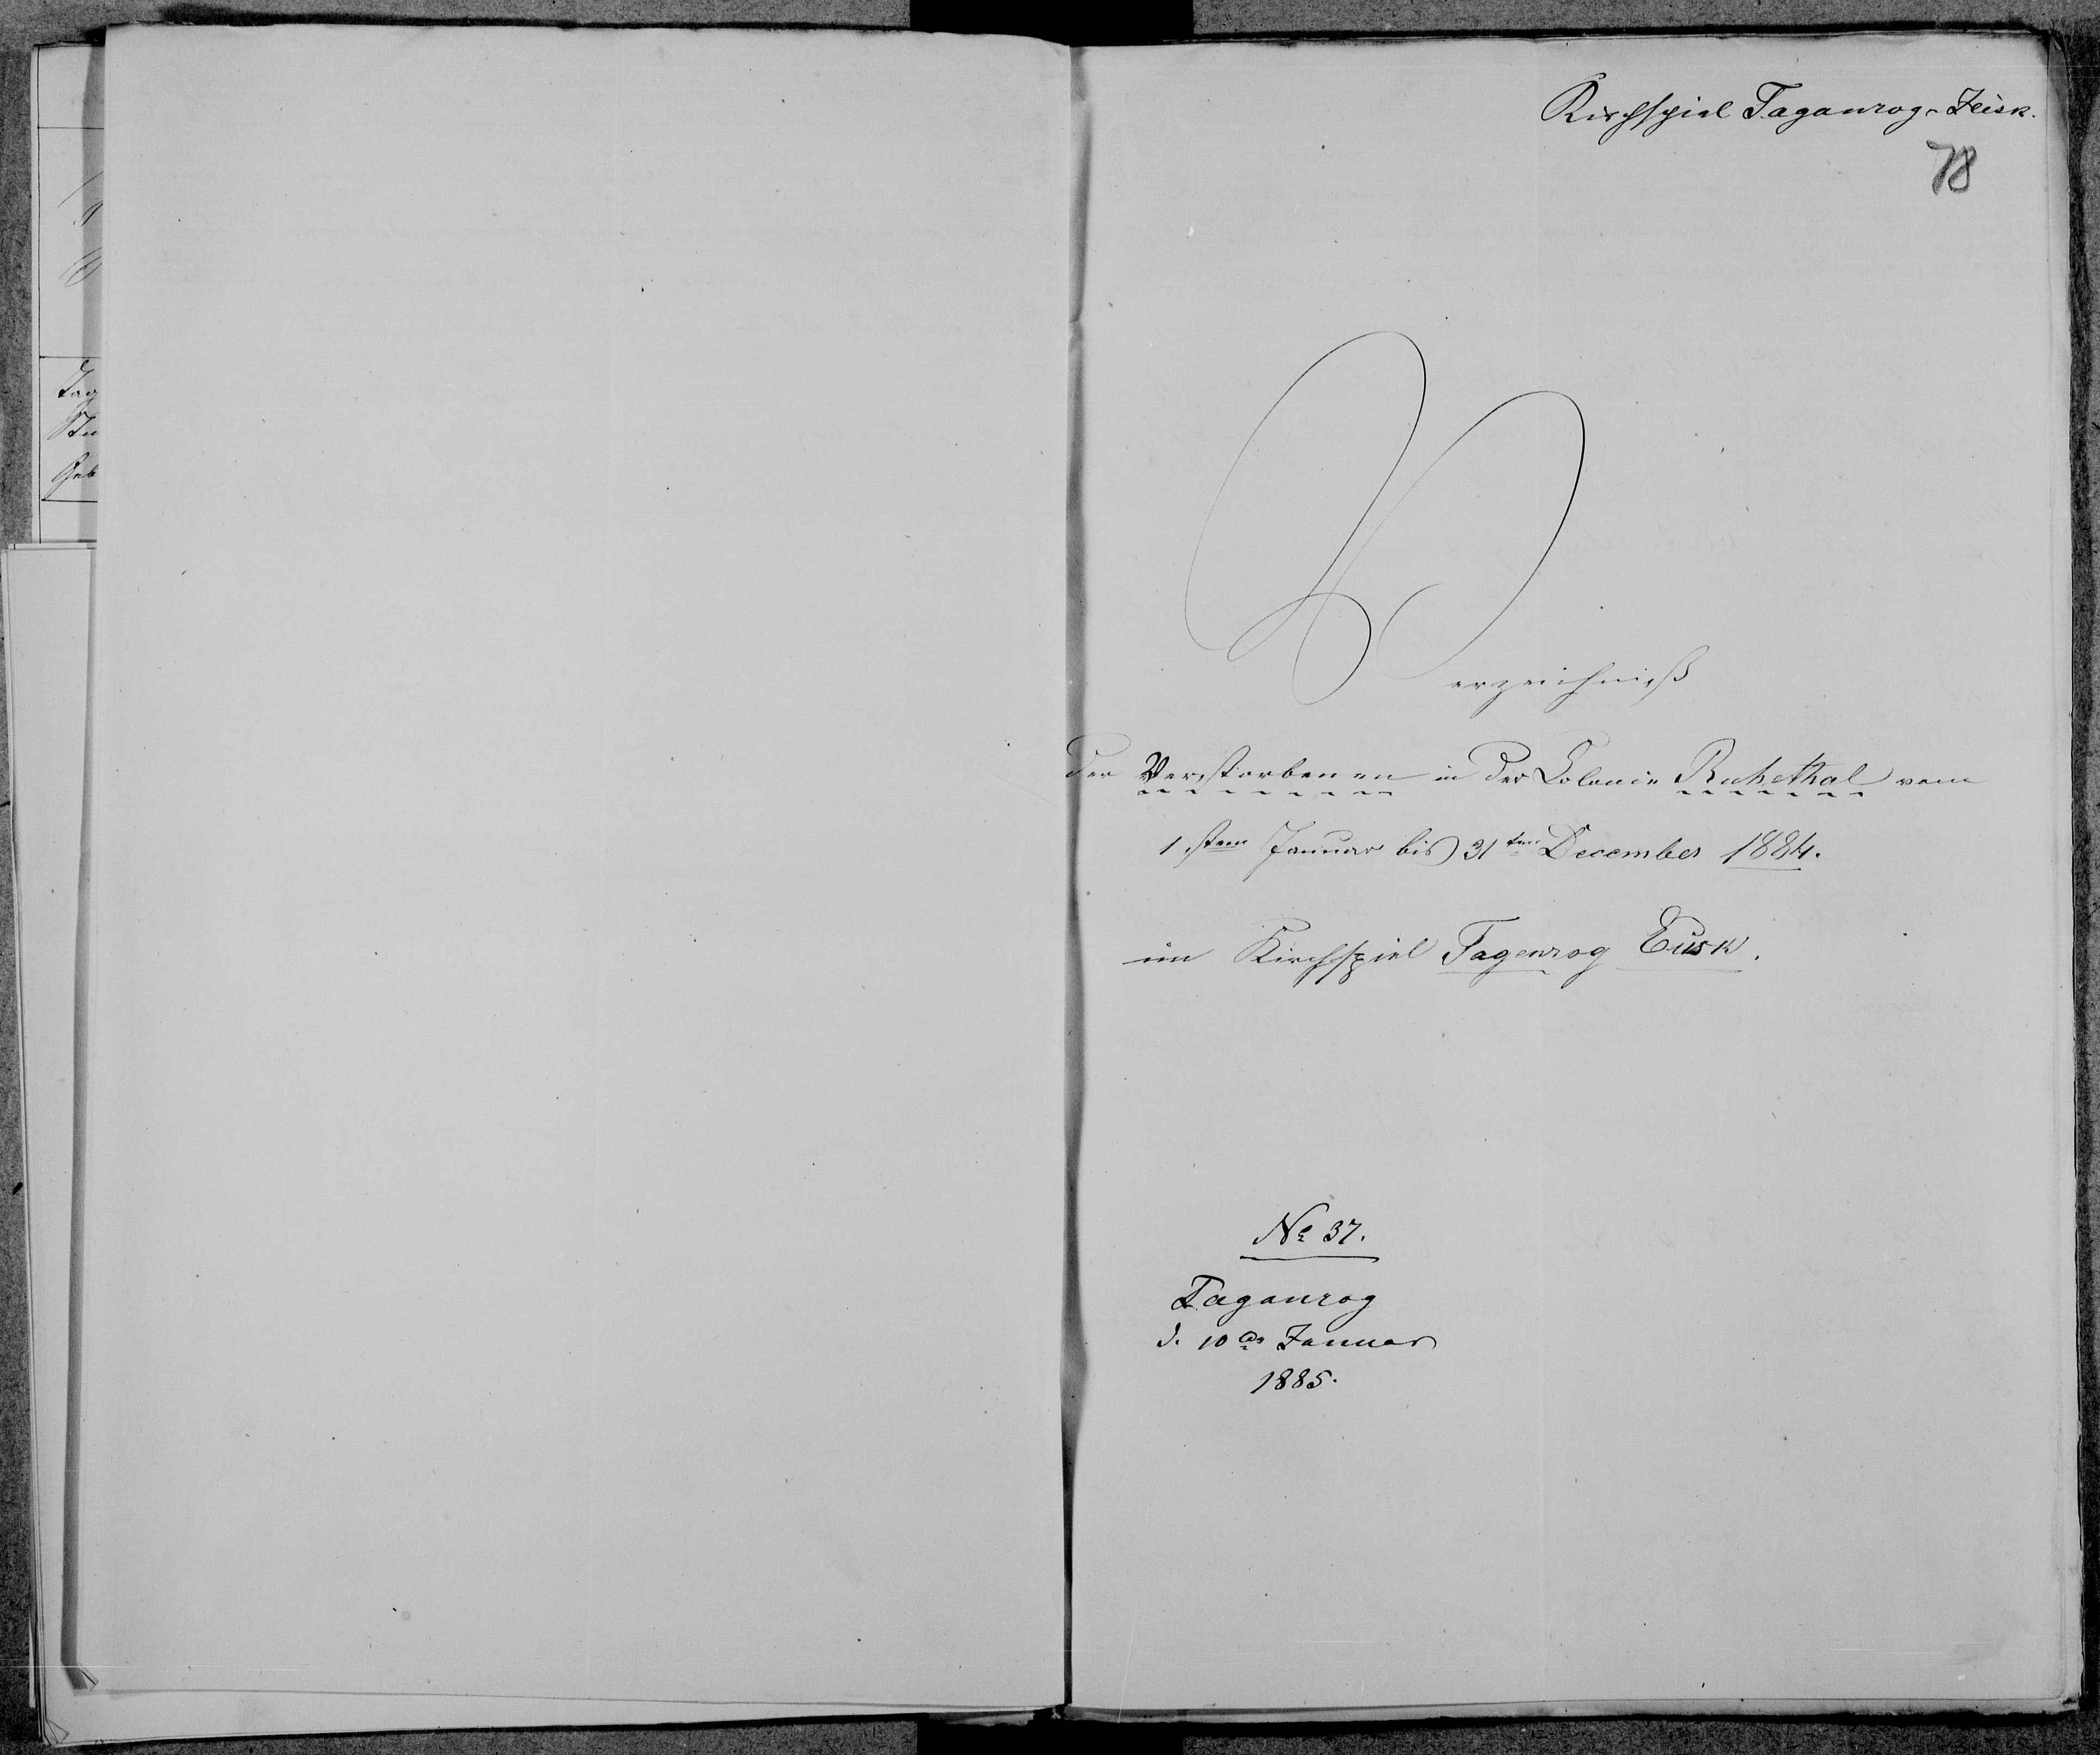 Tag
Stu
Geb
Kirchspiel Taganrog-Jeisk.
78
Verzeichniß
der Verstorbenen in der Colonie Ruhethal vom
1sten Januar bis 31ten December 1884.
im Kirchspiel Tagenrog Eisk.
№ 37.
Taganrog
d. 10ten Januar
1885.